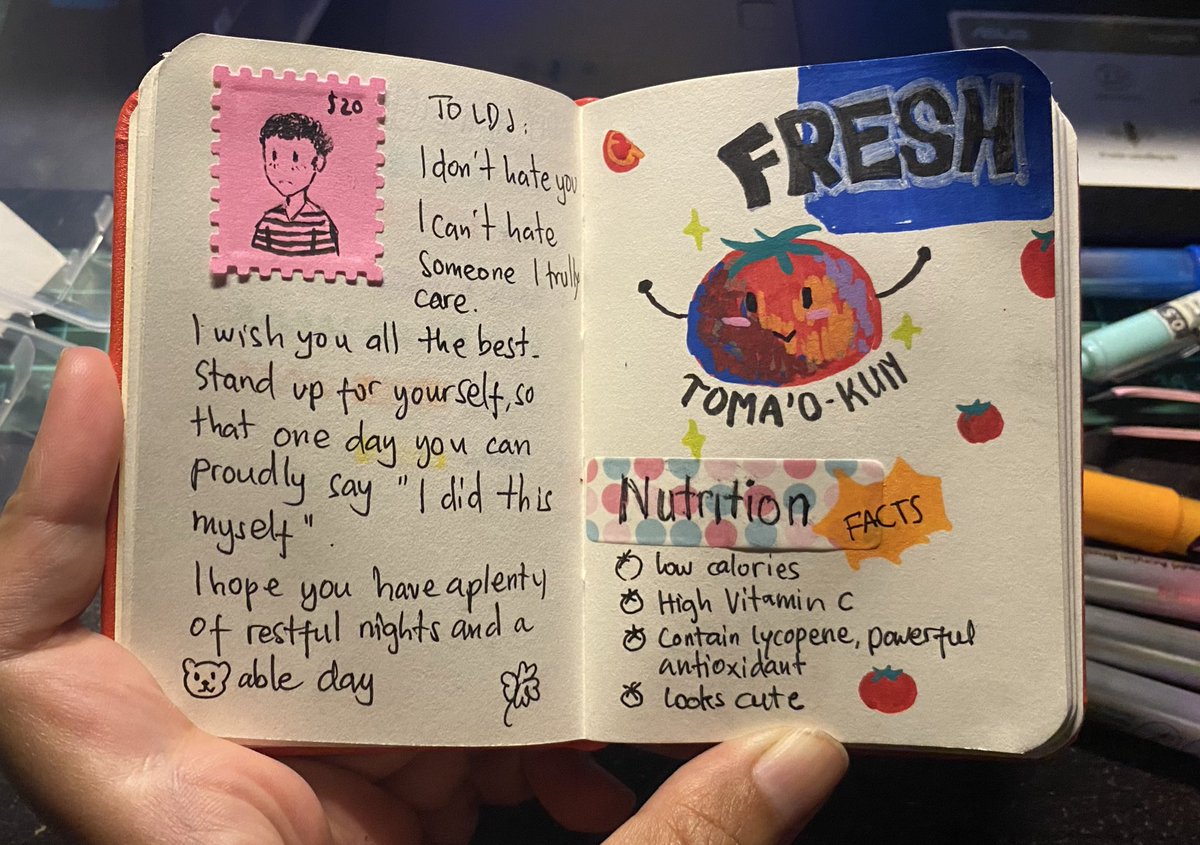 $20
TO LDJ:
I don't hate you
I can't hate
someone I trully
care.
I wish you all the best.
Stand up for yourself, so
that one day you can
proudly say "I did this
myself".
I hope you have a plenty
of restful nights and a
able day
FRESH
TOMA'O-KUN
Nutrition
FACTS
low calories
High Vitamin C
Contain lycopene, powerful
antioxidant
looks cute